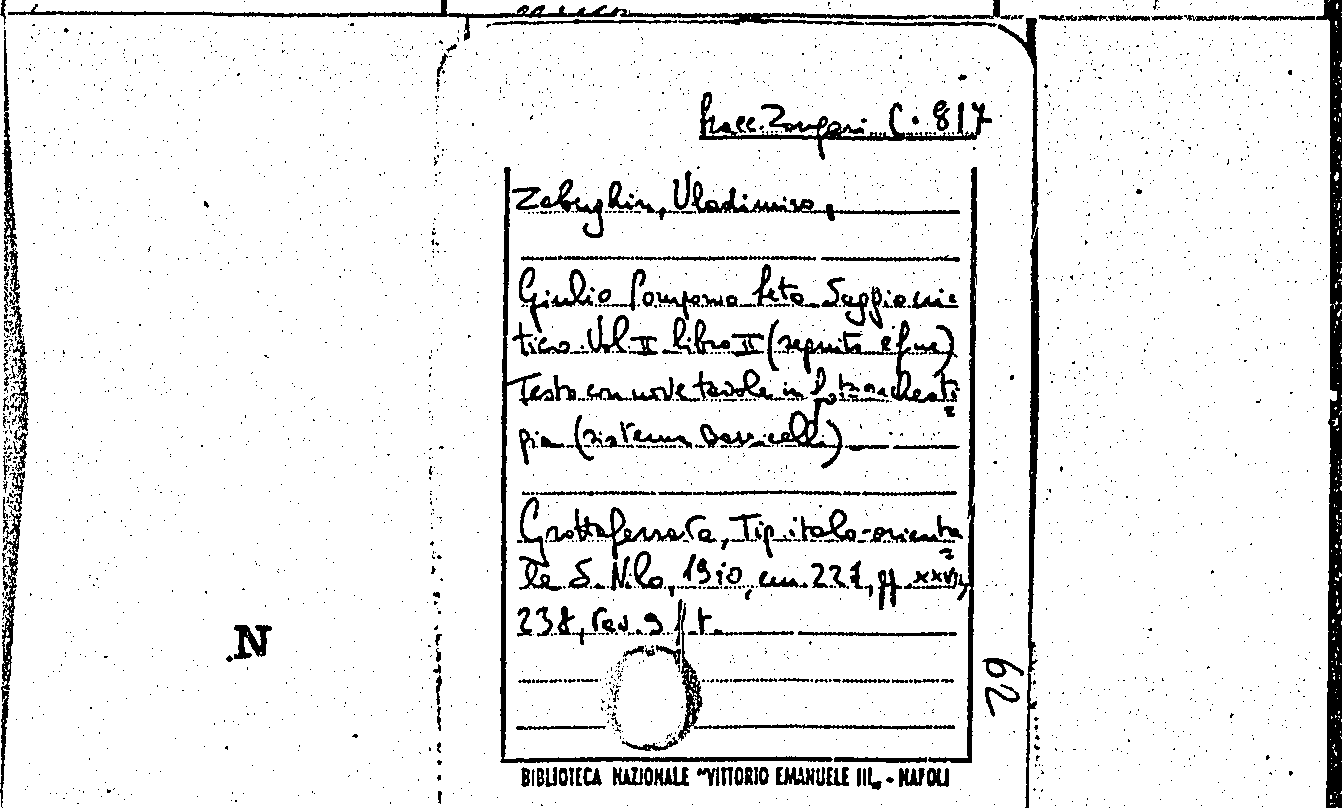 Racc. Zangari C. 817
Zabughin, Vladimiro,
Giulio Pomponio Leto Saggio cri
tico Vol II libro II (seguito e fine)
Testo con nove tavole in fotozincoti
pia (sistema
Grottaferrata, Tip. italo-orienta
=
le S. Nilo, 1910, cm. 227, pp. XXVIII,
238, tav. 9 f. t.
N
62
BIBLIOTECA NAZIONALE "VITTORIO EMANUELE III„ - NAPOLI